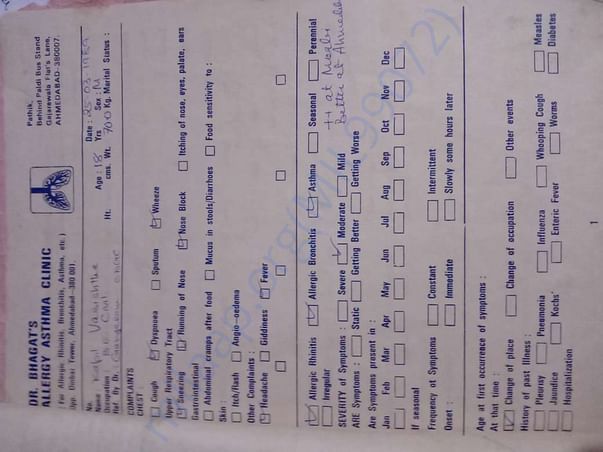 DR. BHAGAT'S
ALLERGY ASTHMA CLINIC
( For Allergic Rhinitis, Bronchitis, Asthma, etc.)
Opp. Dinbai Tower, Ahmedabad-380 001.
Pathik,
Behind Paldi Bus Stand
Gajarawala Flat's Lane,
AHMEDABAD-380007.
No. Date : 25 03 1989
Name Age : 18 Yrs Sex : M
Occupation : Ht. cms. Wt. Kg. Marital Status :
Ref. By Dr.
COMPLAINTS
CHEST :
Cough Dyspnoea Sputum Wheeze
Upper Respiratory Tract
Sneezing Running of Nose Nose Block Itching of nose, eyes, palate, ears
Gastrointestinal
Abdominal cramps after food Mucus in stools/Diarrhoes Food sensitivity to :
Skin :
Itch/Rash Angio-oedema
Other Complaints :
Headache Giddiness Fever
Allergic Rhinitis Allergic Bronchitis Asthma Seasonal Perennial
Irregular
++ at
Better at Ahmedabad
SEVERITY of Symptoms : Severe Moderate Mild
ARE Symptoms : Static Getting Better Getting Worse
Are Symptoms present in :
Jan Feb Mar Apr May Jun Jul Aug Sep Oct Nov Dec
If seasonal
Frequency of Symptoms Constant Intermittent
Onset : Immediate Slowly some hours later
Age at first occurrence of symptoms :
At that time :
Change of place Change of occupation Other events
History of past Illness :
Pleurisy Pneumonia Influenza Whooping Cough Measles
Jaundice Kochs' Enteric Fever Worms Diabetes
Hospitalization
1